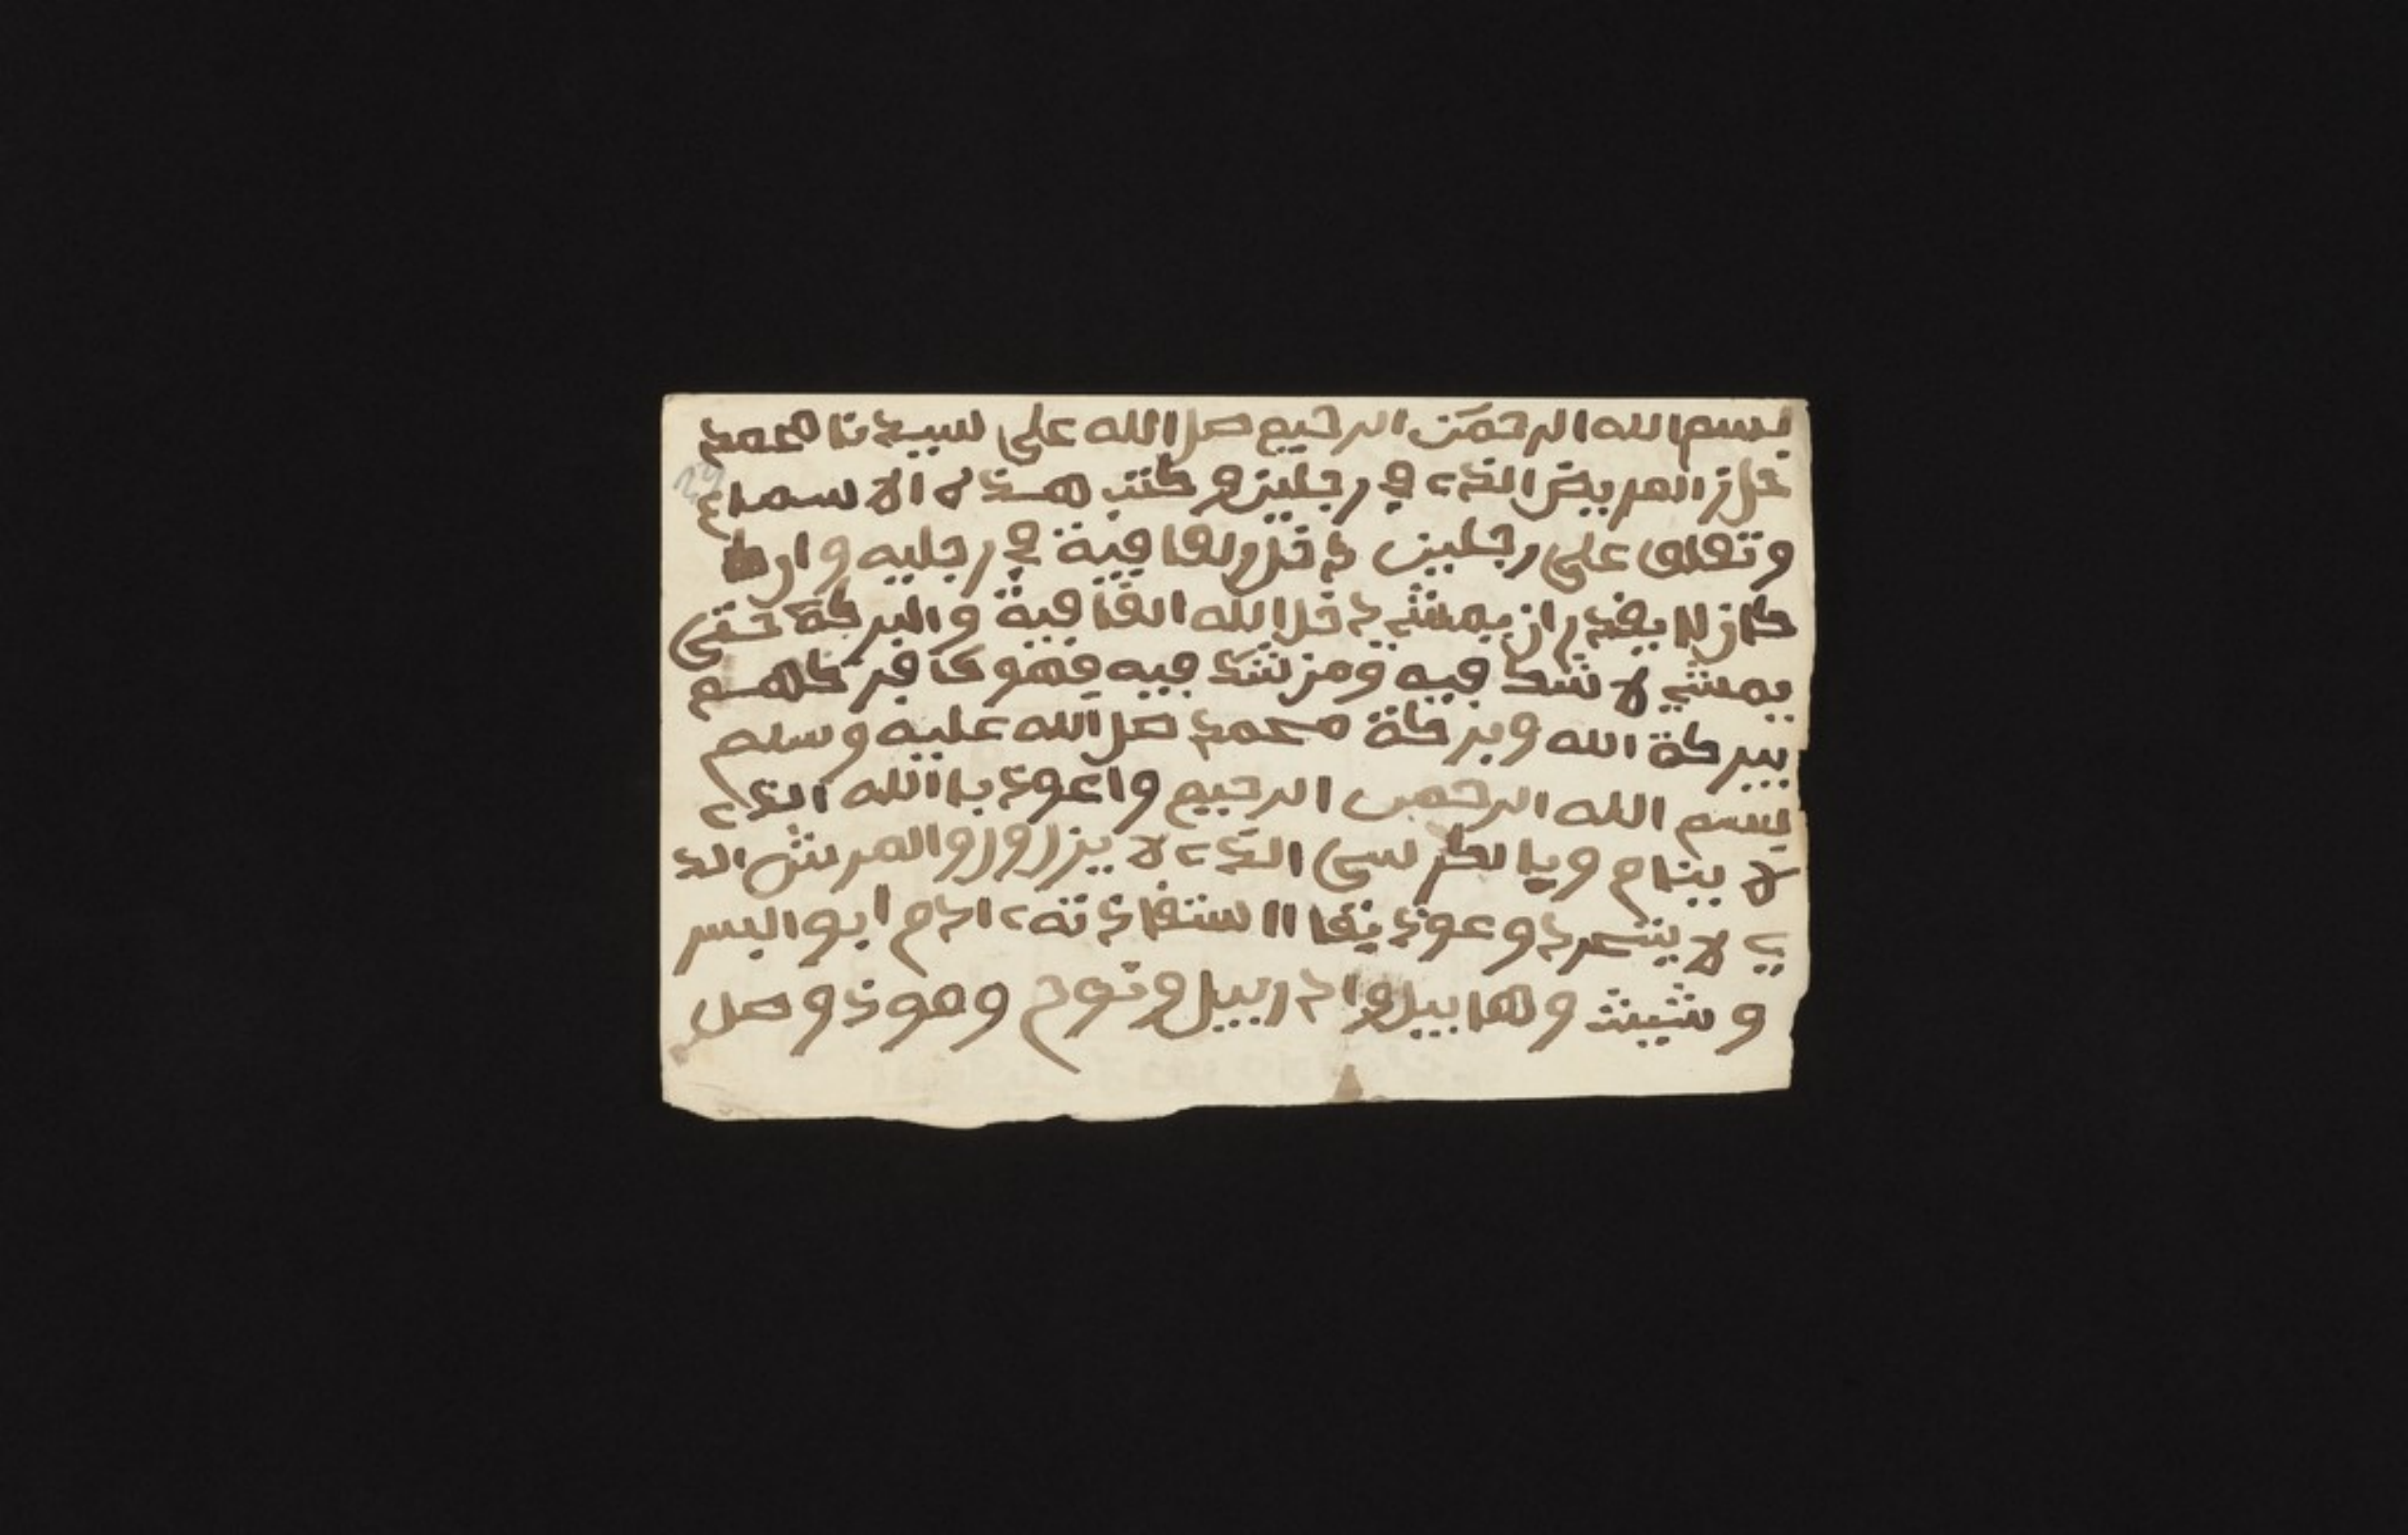 بسم الله الرحمن الرحيم صل الله على سيدنا محمد
المريض الذي في رجلين و كتب هذه الاسماء
و تعلق على رجلين دخل العافية في رجليه و ان
كان لا يقدر ان يمشي دخل الله العافية والبركة حتى
يمشي لا شك فيه ومن شك فيه فهو كافر
ببركة الله وبركة محمد صل الله عليه وسلم
بسم الله الرحمن الرحيم واعوذ با الله الذي
لا ينام وبا لكرسى الذي لا يزور والعرش الذ
ي لا يتحرد وعوذ ادم ابو البسر
و شيث و هابيل وادرييل ونوح وهوذ وصل